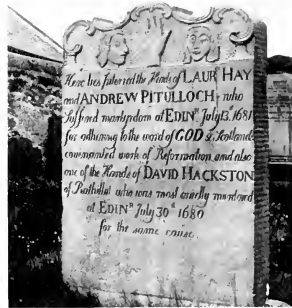 Here lies Interred the Heads of LAUR HAY
and ANDREW PITULLOCH who
Suffered martyrdom at EDINR July 13 1681
for adhering to the word of GOD & Scotlands
covenanted work of Reformation and also
one of the Hands of DAVID HACKSTON
of Rathillet who was most cruelly murdered
at EDINR July 30th 1680
for the same cause